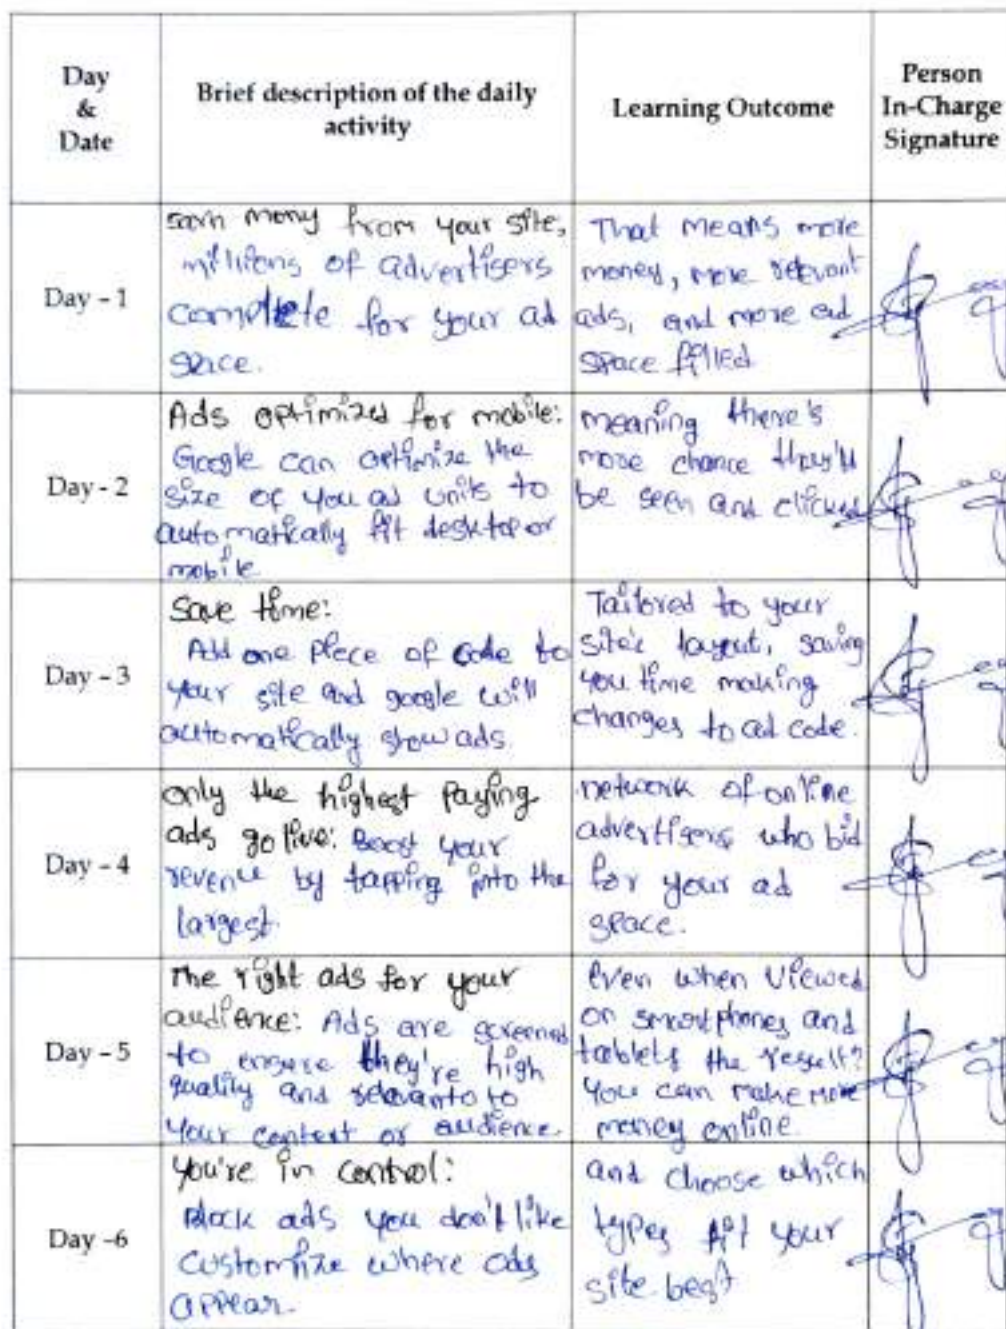 Day
&
Date
Brief description of the daily
activity
Learning Outcome
Person
In-Charge
Signature
Day - 1
earn mony from your site,
millions of advertisers
complete for your ad
space.
That means more
money, more relevant
ads, and more ad
space filled
Day - 2
Ads optimized for mobile:
Google can optimize the
size of you ad units to
automatically fit desktop or
mobile
meaning there's
more chance they'll
be seen and clicked
Day - 3
Save time:
Add one piece of code to
your site and google will
automatically show ads.
Tailored to your
site's layout, saving
you time making
changes to ad code.
Day - 4
only the highest paying
ads go live: Boost your
revenue by tapping into the
largest.
network of online
advertisers who bid
for your ad
space.
Day - 5
The right ads for your
audience: Ads are screened
to ensure they're high
quality and relevant to
your content or audience.
even when viewed
on smartphones and
tablets the result?
you can make more
money online.
Day -6
you're in control:
Block ads you don't like
customize where ads
appear.
and choose which
types fit your
site best